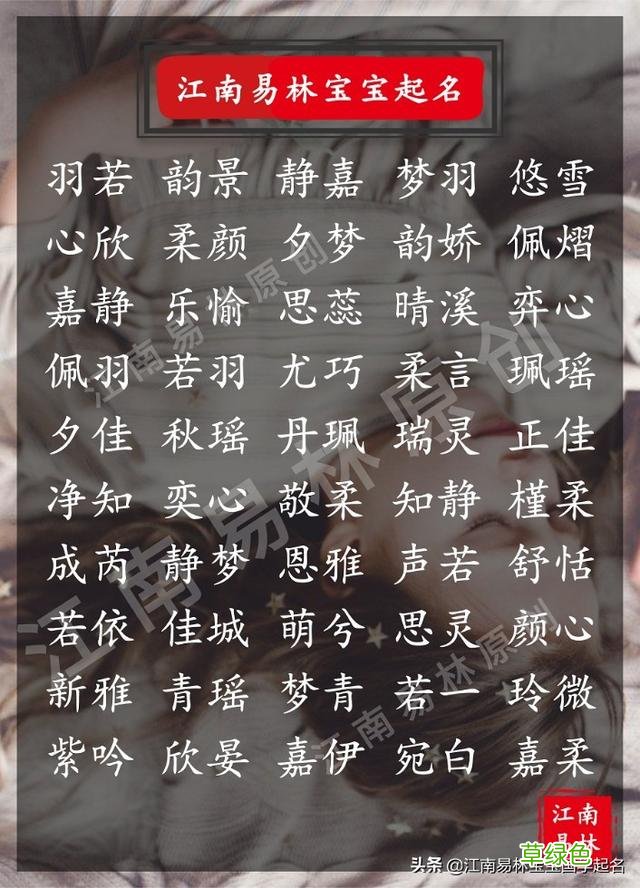 江南易林宝宝起名
羽若 韵景 静嘉 梦羽 悠雪
心欣 柔颜 夕梦 韵娇 佩熠
嘉静 乐愉 思蕊 晴溪 弈心
佩羽 若羽 尤巧 柔言 珮瑶
夕佳 秋瑶 丹珮 瑞灵 正佳
净知 奕心 敬柔 知静 槿柔
成芮 静梦 恩雅 声若 舒恬
若依 佳城 萌兮 思灵 颜心
新雅 青瑶 梦青 若一 玲微
紫吟 欣晏 嘉伊 宛白 嘉柔
江南易林原创
江南易林原创
江南易林原创
江南
易林
草绿色
头条 @江南易林宝宝国学起名